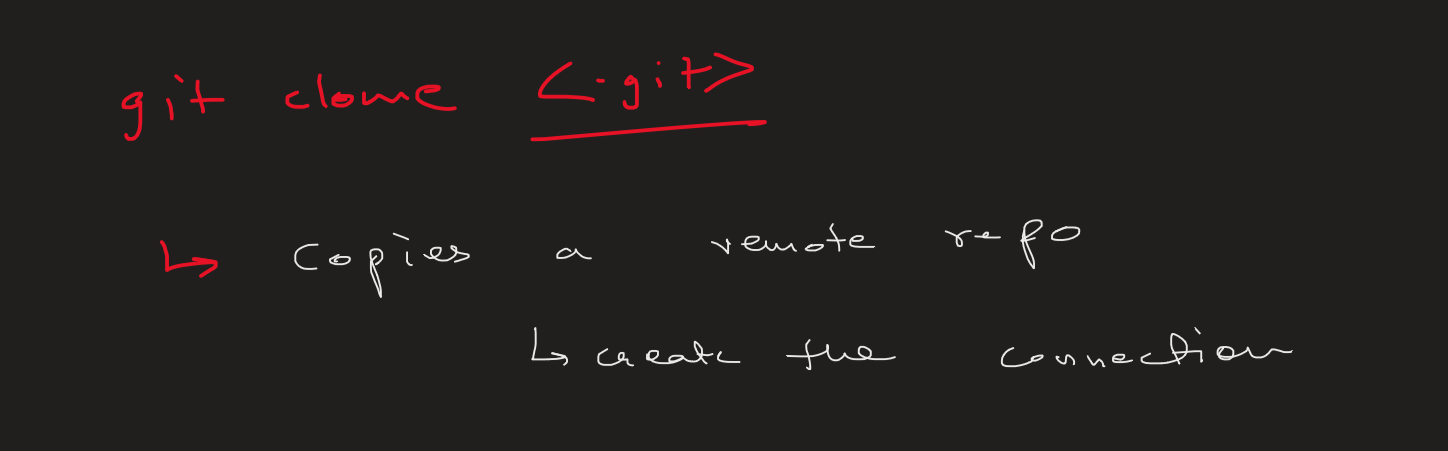 git clone <.git>
↳ Copies a remote repo
↳ create the connection